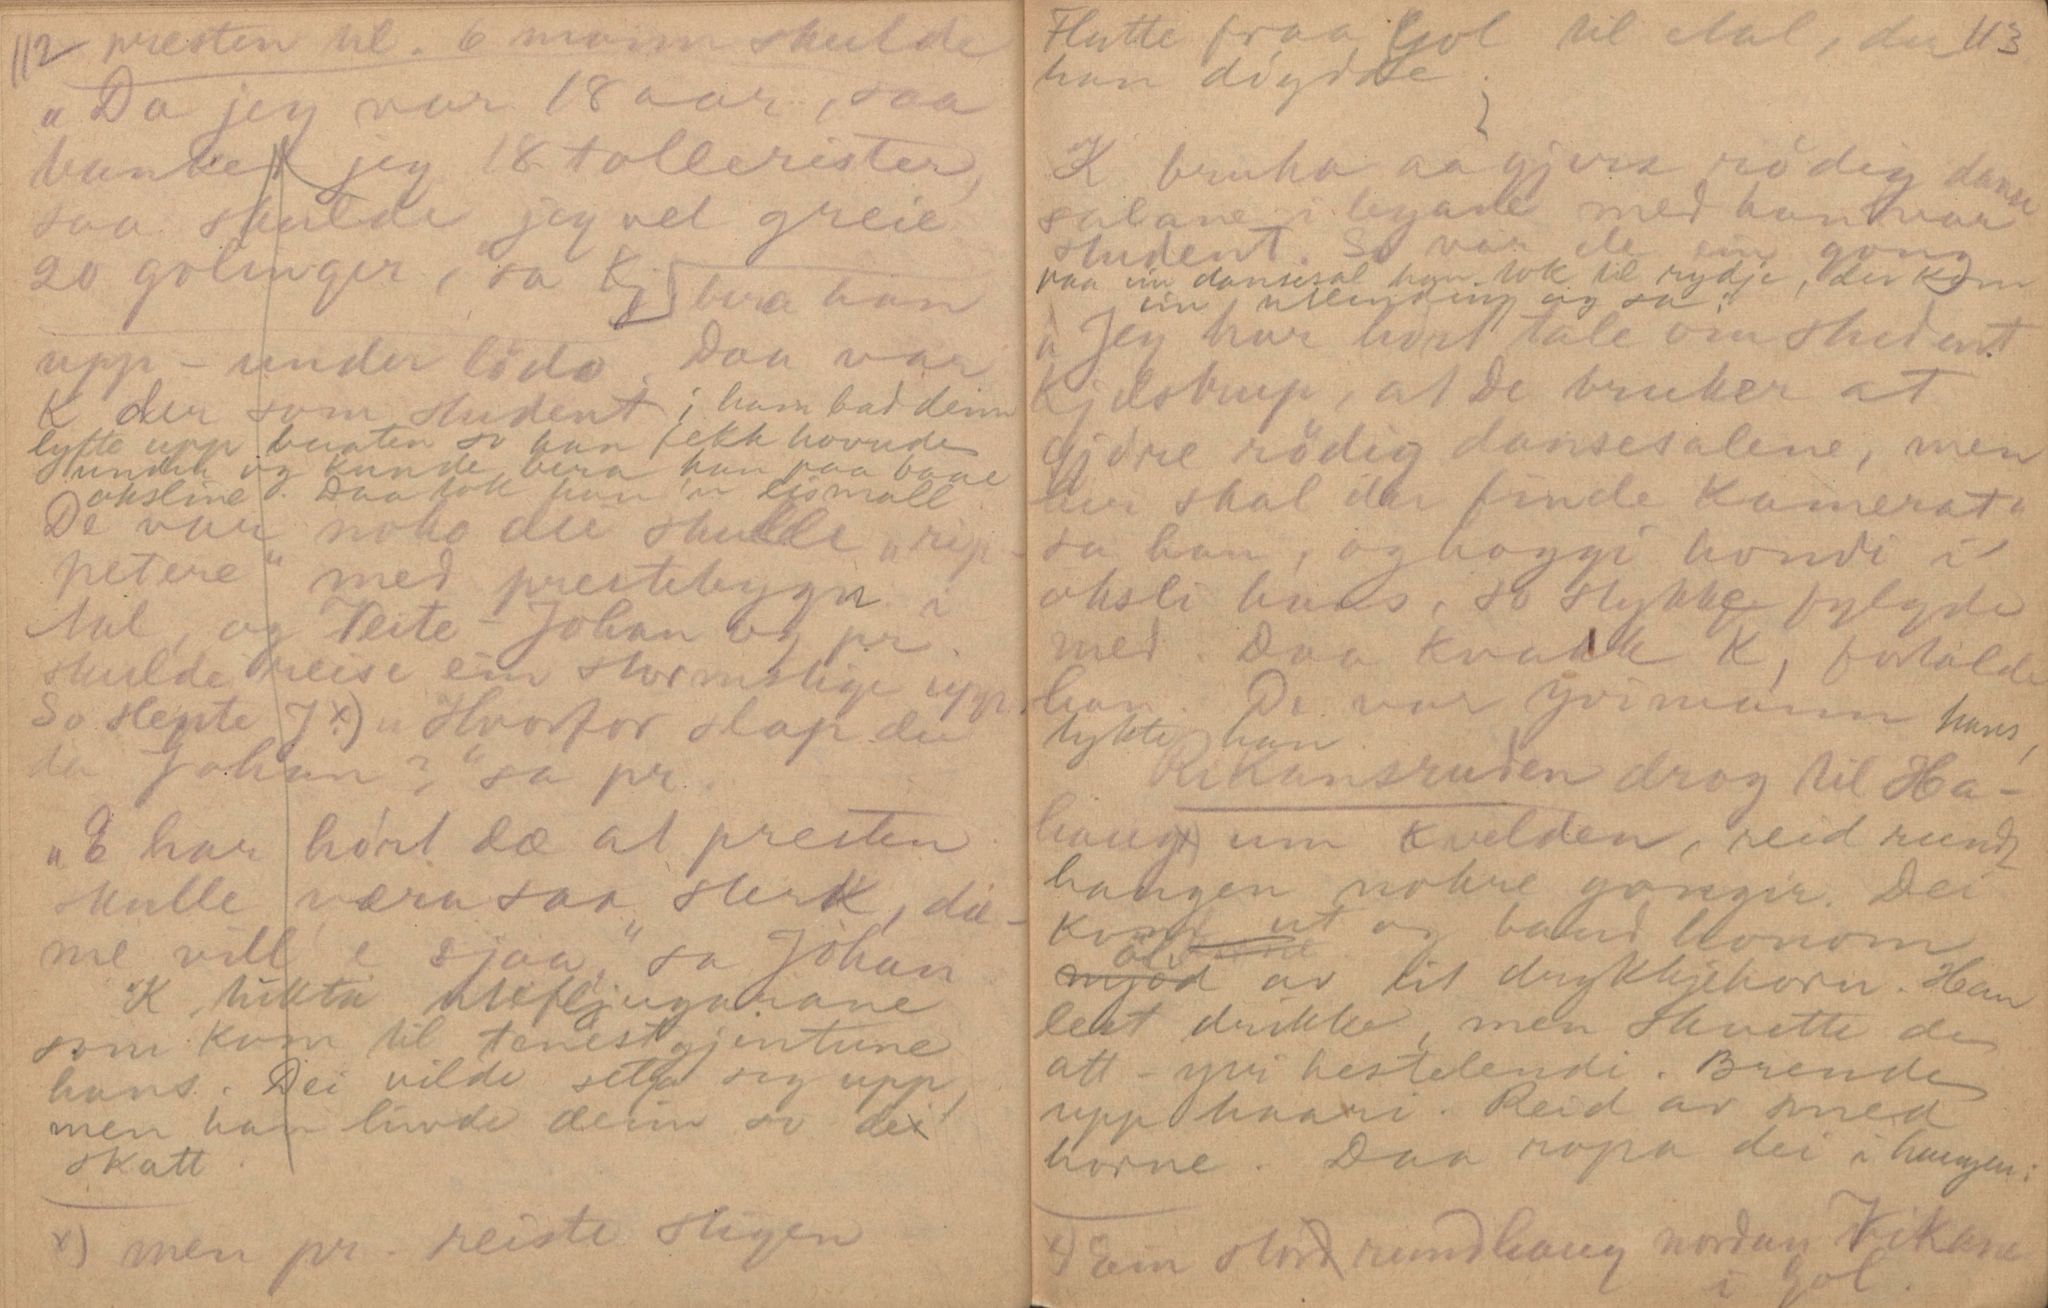 112 presten til. 6 mann skulde
„Da jeg var 18 aar, saa
banket jeg 18 tollerister,
saa skulde jeg vel greie
20 golinger, "sa Kj bera han
upp - under lödo. Daa var
K der som student; ham bad deim
lyfte upp baaten so han fekk hovude
under og kunde bera han paa baae
oksline. Daa tok han 'n
De var noko dei skulle „rip-
petere" med prestebygn i
Aal, og Veite-Johan og pr.
skulde reise ein stormstige upp.
So slepte J x) „Hvorfor slap du
da Johan?" sa pr.
„E har hört dæ at presten
skulle væra saa sterk, dæ-
me vill e sjaa," sa Johan
K likta
som kom til tenestgjentune
hans. Dei vilde setja seg upp,
men han livde deim so dei
skatt.
x) men pr. reiste stigen
Flutte fraa Gol til Aal, der 113
han döydde.
K bruka aa gjera rödig danse
salane i byane med han var
student. So var de ein gong
paa ein dansesal han tok til rydje, der kom
ein utlending og sa:
„Jeg har hört tale om student
Kjelstrup, at De bruker at
gjöre rödig dansesalene, men
her skal der finde Kamerat"
sa han, og hoggi hondi i
oksli hans, so stykke fylgde
med. Daa kvakk K, fortalde
han. De var yvimann hans,
tykte han.
Rikansruden drog til Ha-
haug x) um kvelden, reid rundt
haugen nokre gonger. Dei
kom ut og baud honom
öl mjöd av eit drykkjehorn. Han
lest drikke, men skvette de
att-yvi hestelendi. Brende
upp haari. Reid av med
horne. Daa ropa dei i haugen:
x) Ein stor rundhaug nordan Vikane
i Gol.